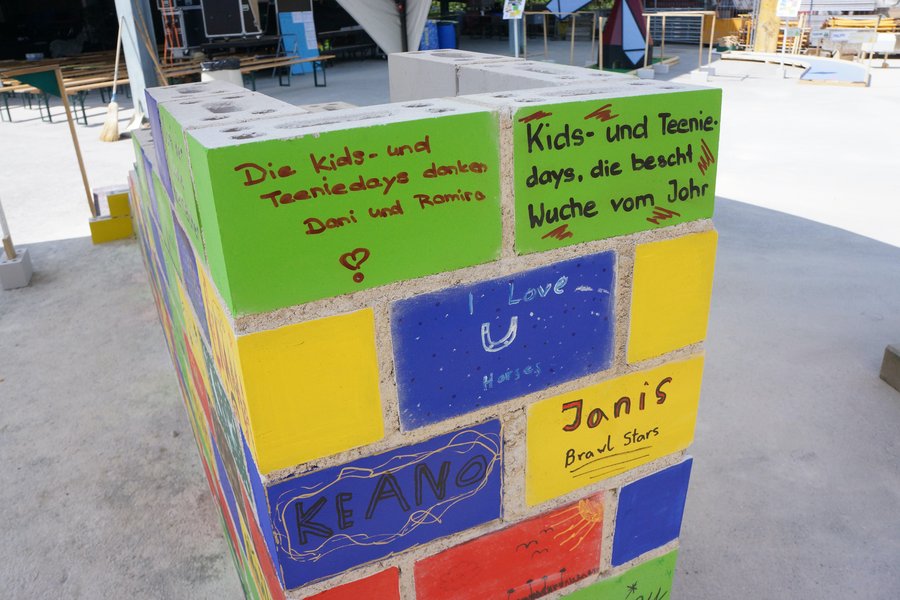 Die Kids- und
Teeniedays danken
Dani und Ramira
Kids- und Teenie-
days, die bescht
Wuche vom Johr
I Love
Horses
Janis
Brawl Stars
KEANO